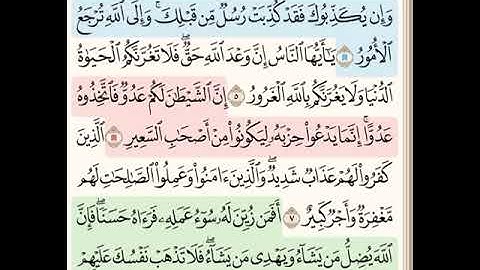 وَإِن يُكَذِّبُوكَ فَقَدْ كُذِّبَتْ رُسُلٌ مِّن قَبْلِكَ ۚ وَإِلَى ٱللَّهِ تُرْجَعُ
ٱلْأُمُورُ ٤ يَـٰٓأَيُّهَا ٱلنَّاسُ إِنَّ وَعْدَ ٱللَّهِ حَقٌّ ۖ فَلَا تَغُرَّنَّكُمُ ٱلْحَيَوٰةُ
ٱلدُّنْيَا وَلَا يَغُرَّنَّكُم بِٱللَّهِ ٱلْغَرُورُ ٥ إِنَّ ٱلشَّيْطَـٰنَ لَكُمْ عَدُوٌّ فَٱتَّخِذُوهُ
عَدُوًّا ۚ إِنَّمَا يَدْعُوا۟ حِزْبَهُۥ لِيَكُونُوا۟ مِنْ أَصْحَـٰبِ ٱلسَّعِيرِ ٦ ٱلَّذِينَ
كَفَرُوا۟ لَهُمْ عَذَابٌ شَدِيدٌ ۖ وَٱلَّذِينَ ءَامَنُوا۟ وَعَمِلُوا۟ ٱلصَّـٰلِحَـٰتِ لَهُم
مَّغْفِرَةٌ وَأَجْرٌ كَبِيرٌ ٧ أَفَمَن زُيِّنَ لَهُۥ سُوٓءُ عَمَلِهِۦ فَرَءَاهُ حَسَنًا ۖ فَإِنَّ
ٱللَّهَ يُضِلُّ مَن يَشَآءُ وَيَهْدِى مَن يَشَآءُ ۖ فَلَا تَذْهَبْ نَفْسُكَ عَلَيْهِمْ